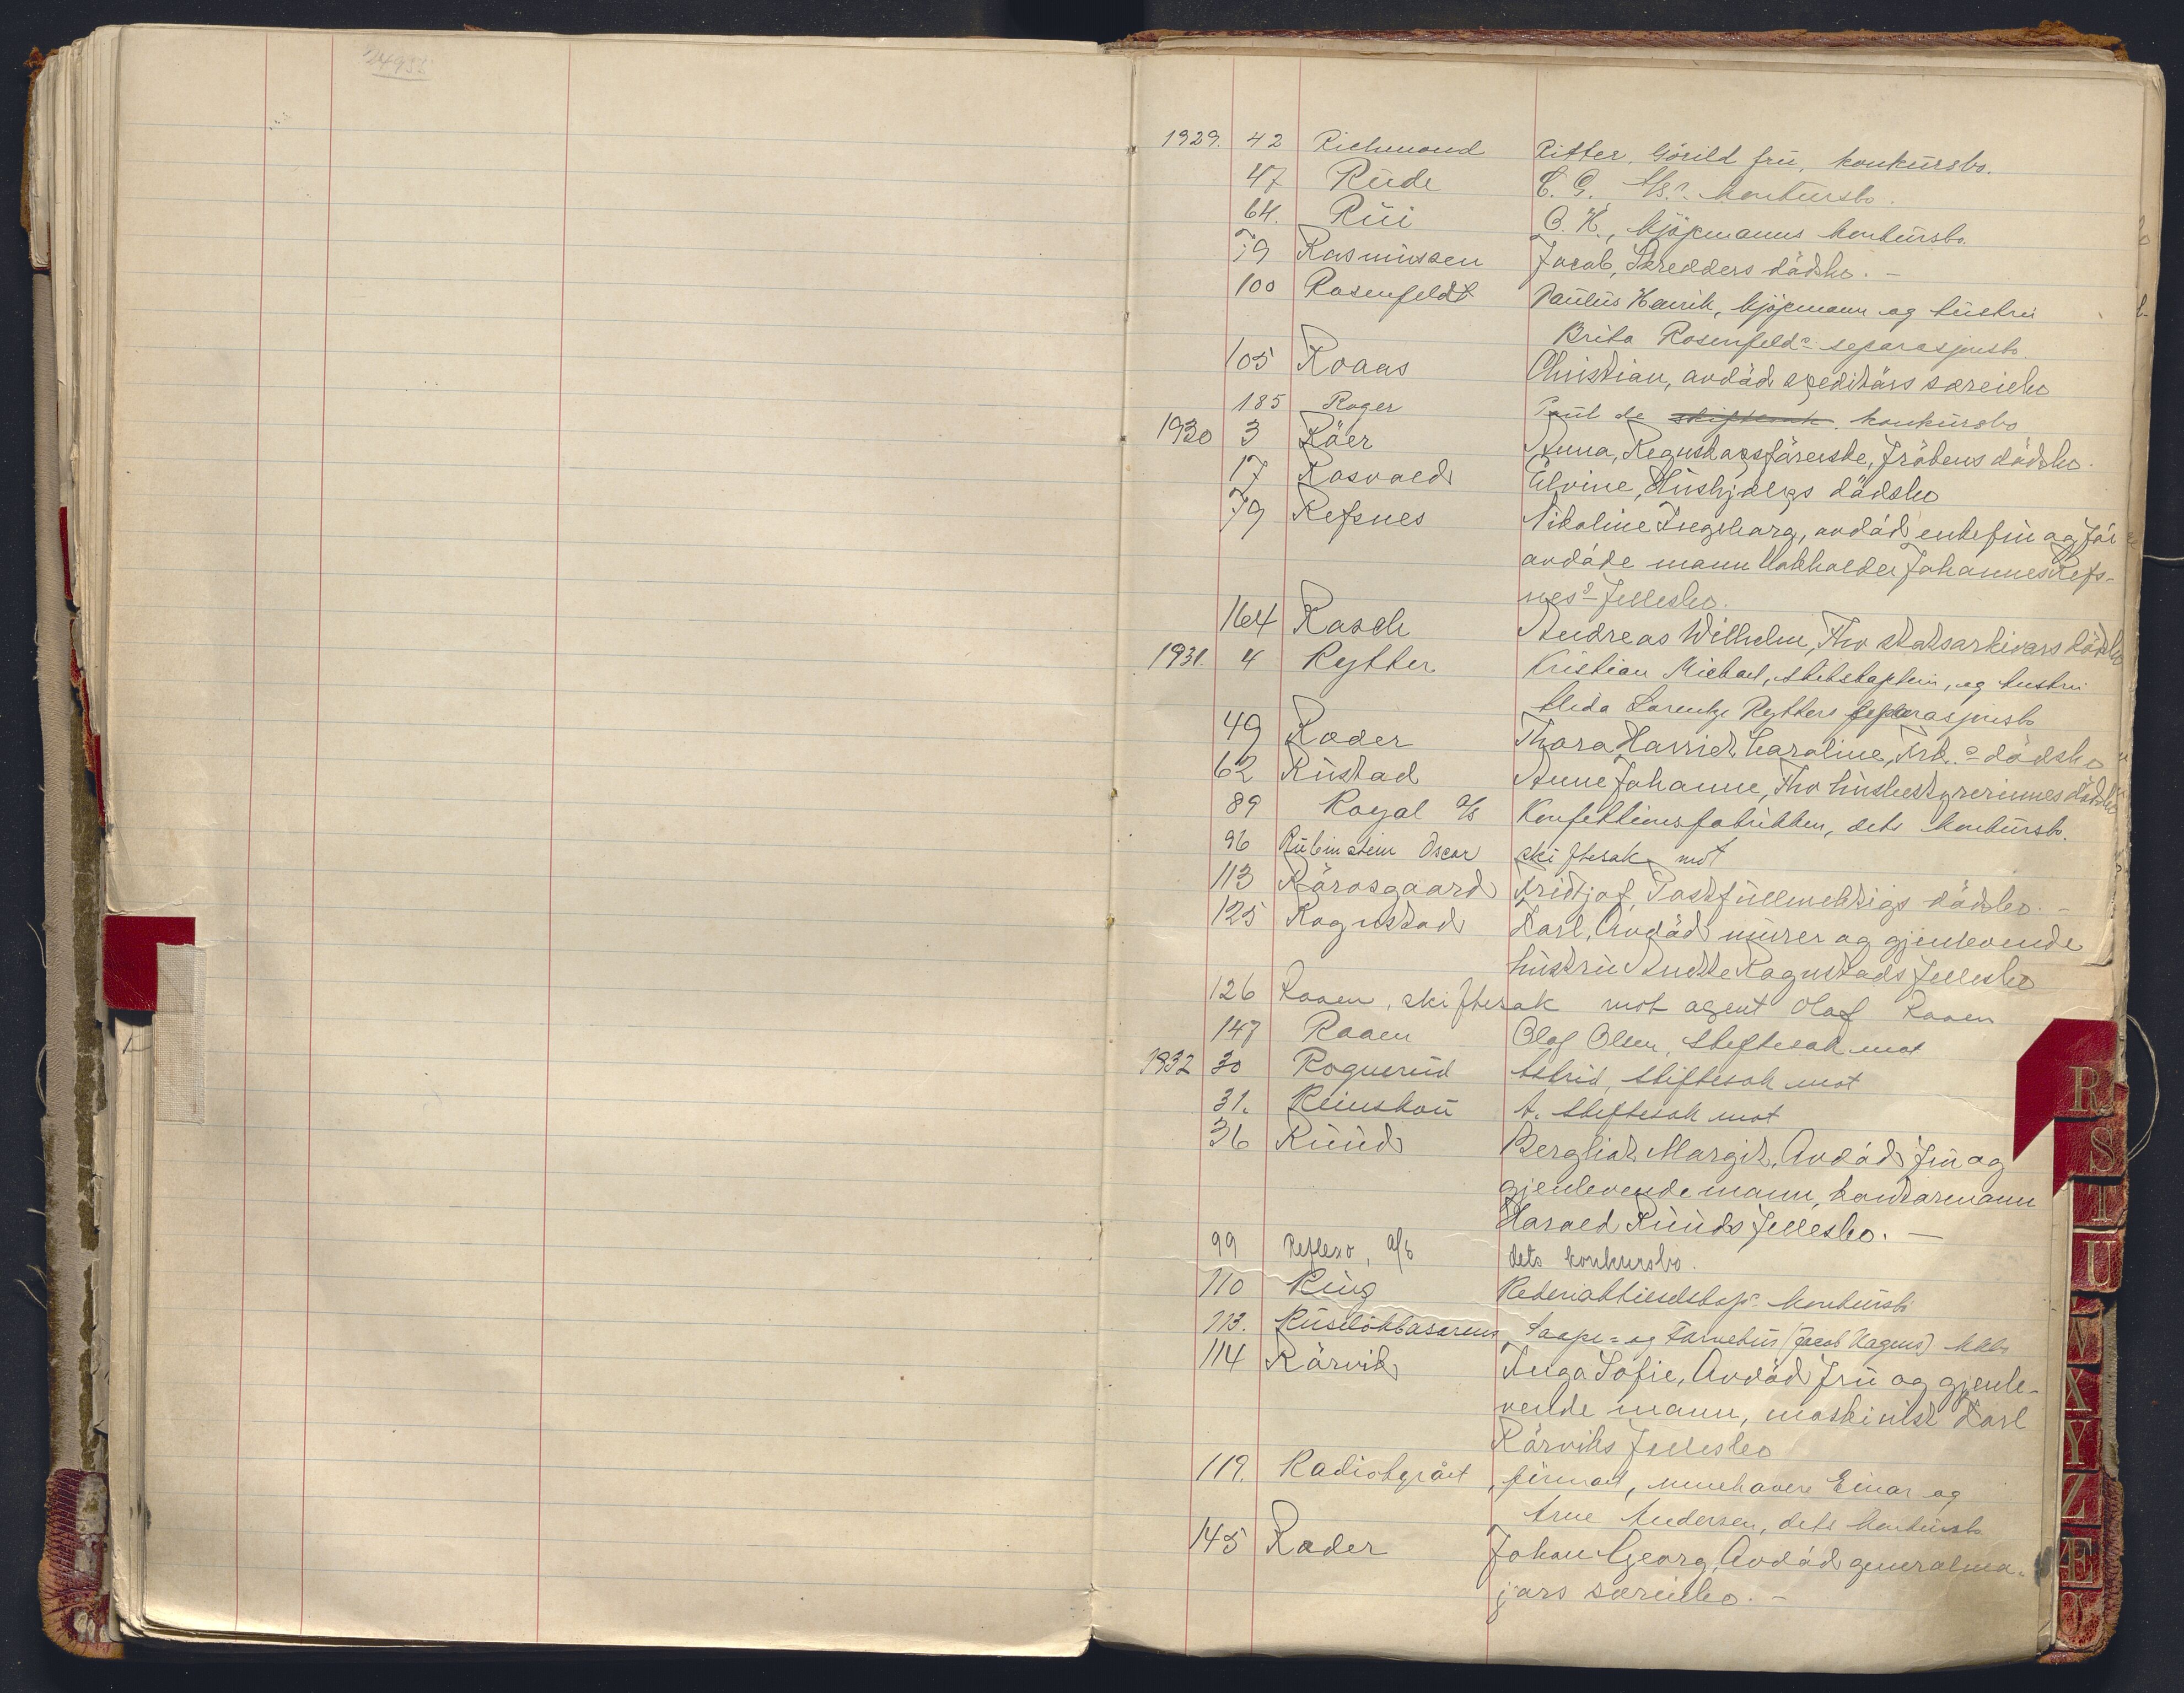 1929. 42 Richmond Ritter, Görild frü, konkürsbo.
47 Rüde C. G. A/S? konkürsbo.
64. Rüi O. K., kjöpmanns konkürsbo.
79 Rasmüssen Jacob, Skredders dödsbo. –
100 Rosenfeldt Paülüs Henrik, kjöpmann og hüstrü
Brita Rosenfelds separasjonsbo
105 Roaas Christian, avdöd expeditörs særeiebo
185 Roger Paül de skiftesak. konkürsbo
1930 3 Röer Anna, Regnskapsförerske, Frökens dödsbo.
17 Rosvold Elvine, Hüshjelps dödsbo
79 Refsnes Nikoline Ingeborg, avdöd enkefrü og för
avdöde mann Vaktholder Johannes Refs-
nes's fellesbo.
164 Rasch Andreas Wilhelm, Fhv statsarkivars dödsbo
1931. 4 Rytter Kristian Michael, skibskaptein, og hustru
Alida Lorentze Rytters separasjonsbo
49 Roeder Thora Harriet Caroline, Frk.s dödsbo
62 Rüstad Anne Johanne, Fhv hüsbestyrerinnes dödsbo
89 Royal A/S Konfektionsfabrikken, dets konkürsbo.
96 Rübinstein Oscar skiftesak mot
113 Rörosgaard Fridtjof, Postfüllmektigs dödsbo. –
125 Rognstad Karl, Avdöd mürer og gjenlevende
hüstrü Anette Rognstads fellesbo
126 Raaen, skiftesak mot agent Olaf Raaen
147 Raaen Olaf Olsen, skiftesak mot
1932 30 Rognerüd Astrid, skiftesak mot
31. Reinskoü A. skiftesak mot
36 Rüüd Bergliot Margit, Avdöd frü og
gjenlevende mann, kontormann
Harald Rüüds fellesbo. –
99 Reflexo, A/S dets konkursbo.
110 Ring Rederiaktieselskap's konkürsbo
113. Rüselökbasarens Saape= og Farvehüs (Jacob Hagens) kkbo
114 Rörvik Inga Sofie, Avdöd frü og gjenle-
vende mann, maskinist Karl
Rörviks fellesbo
119. Radiobyrået, firmaet, innehavere Einar og
Arne Andersen, dets konkürsbo
145 Roeder Johan Georg, Avdöd generalma-
jors særeiebo. –
R
S
T
U
V
X
Y
Z
Æ
Ø